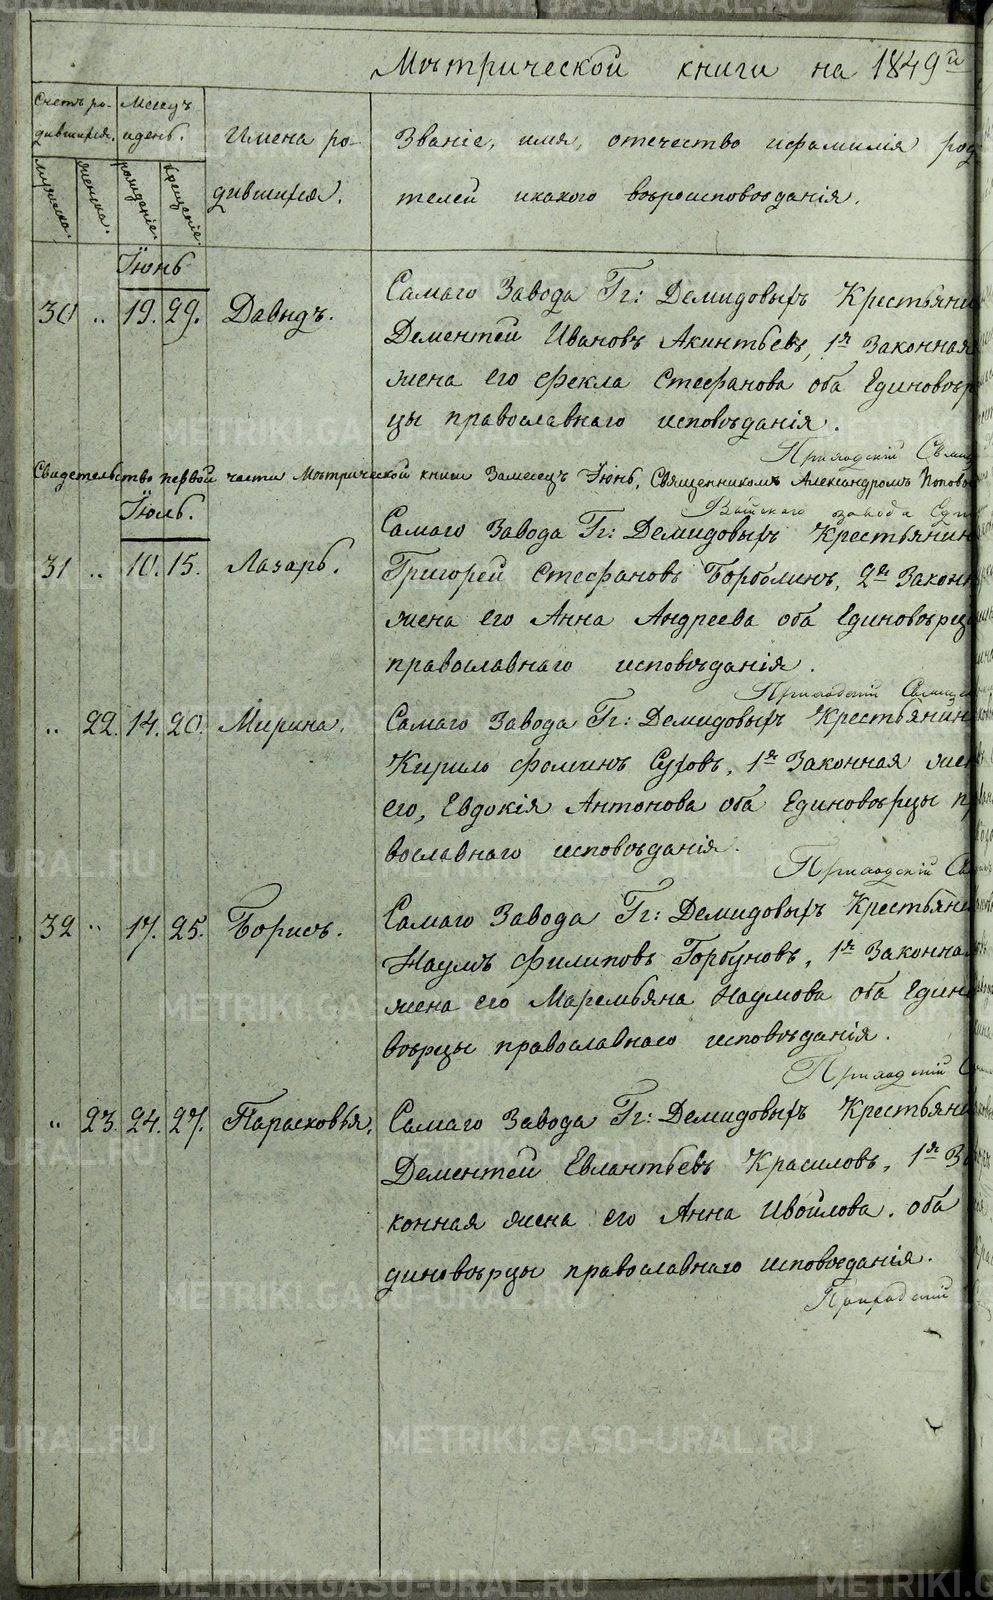 Мѣтрической книги на 1849й
Счетъ ро-
дившихся.
Месецъ
идень.
Имена ро-
дившихся.
Званіе, имя, отечество ифамилія род
телей икакого вѣроисповѣданія.
мужеска.
женска.
рожденіе.
крещеніе.
Іюнь
30 „ 19. 29. Давыдъ.
Самаго Завода Гг: Демидовыхъ Крестьяни
Дементей Ивановъ Акинтьевъ, 1я Законная
жена его Фекла Стефанова оба Единовѣр
цы православнаго исповѣданія.
Приходскій Свящ
Свидетельство первой части Мѣтрической книги Замесецъ Іюнь, Священникомъ Александромъ Попово
Завода Един
Іюль.
31 „ 10. 15. Лазарь.
Самаго Завода Гг: Демидовыхъ Крестьянин
Григорей Стефановъ Борболинъ, 2я Законн
жена его Анна Андреева оба Единовѣрц
православнаго исповѣданія.
Приходскій Священ
„ 22. 14. 20. Мирина.
Самаго Завода Гг: Демидовыхъ Крестьянин
Кирило Фоминъ Суховъ, 1я Законная жен
его, Евдокія Антонова оба Единовѣрцы пр
вославнаго исповѣданія.
Приходскій Св
32 „ 17. 25. Борисъ.
Самаго Завода Гг: Демидовыхъ Крестьяни
Наумъ Филиповъ Горбуновъ, 1я Законная
жена его Маремьяна Наумова оба Едино
вѣрцы православнаго исповѣданія.
Приходскій С
„ 23. 24. 27. Парасковья.
Самаго Завода Гг: Демидовыхъ Крестьяни
Дементей Евлантьевъ Красиловъ, 1я За
конная жена его Анна Ивойлова. оба
диновѣрцы православнаго исповѣданія.
Приходскій
METRIKI.GASO-URAL.RU